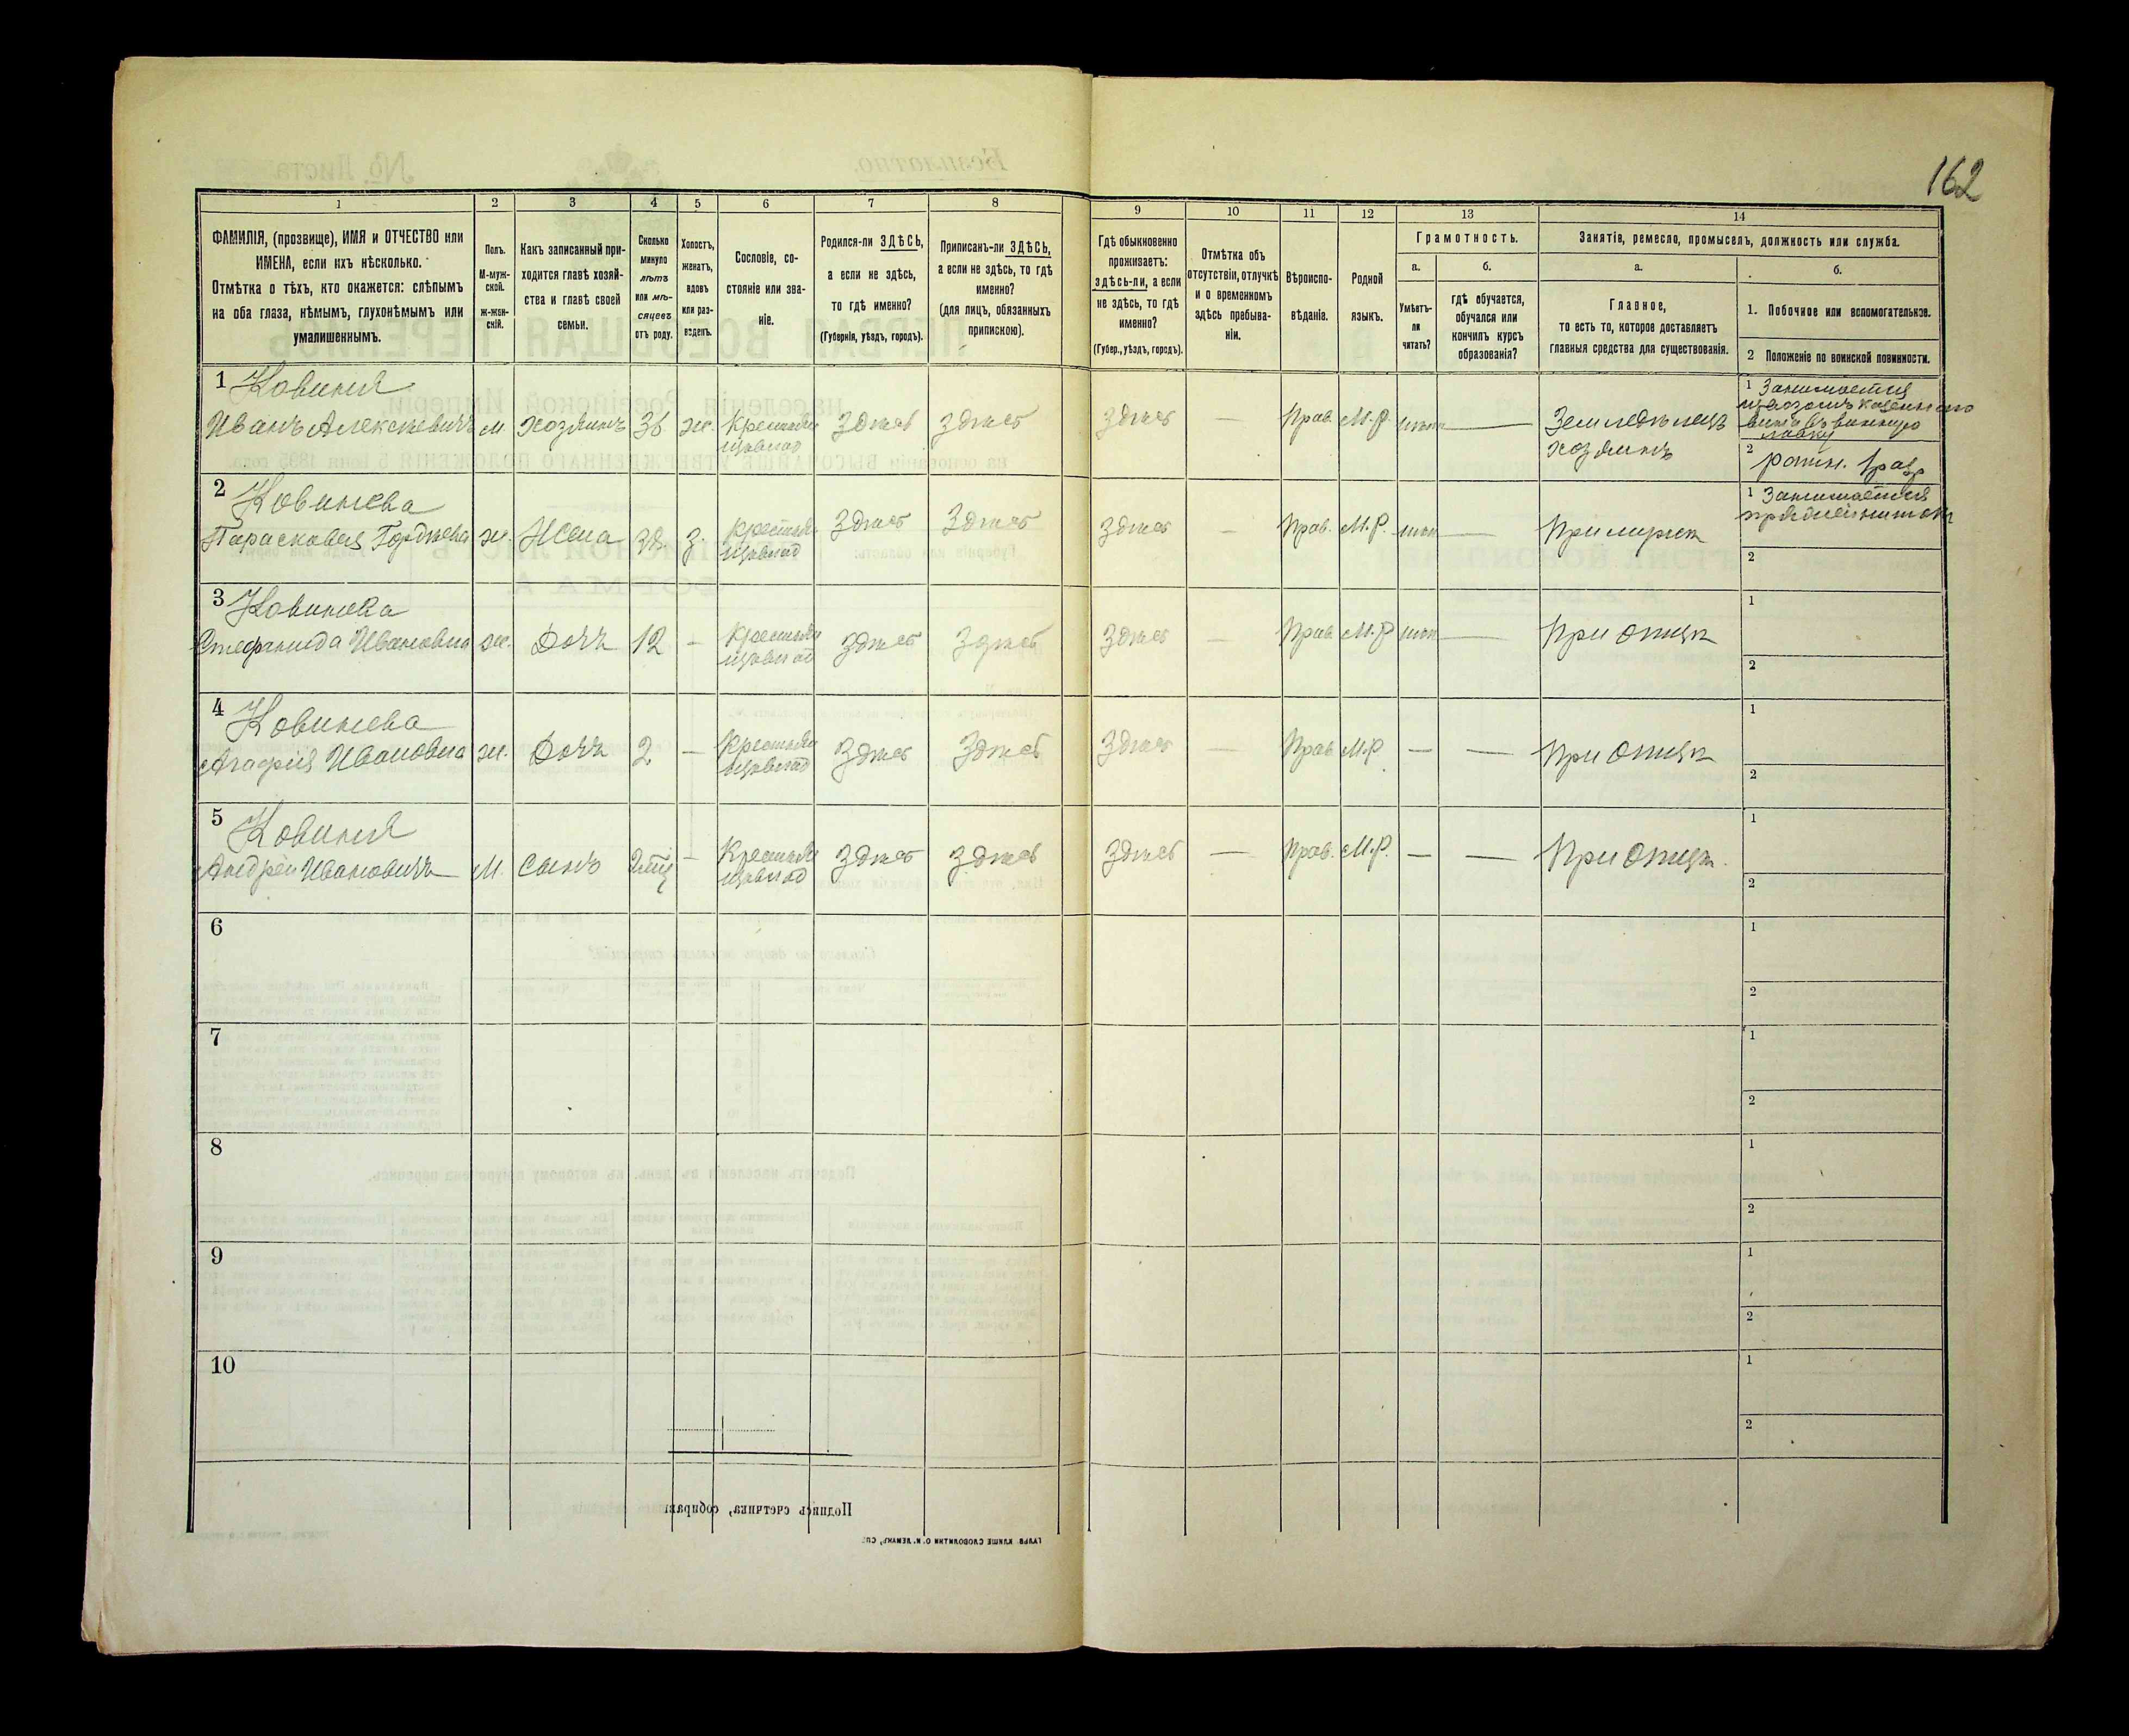 162
1
2
3
4
5
6
7
8
9
10
11
12
13
14
ФАМИЛІЯ, (прозвище), ИМЯ и ОТЧЕСТВО или
ИМЕНА, если ихъ нѣсколько.
Отмѣтка о тѣхъ, кто окажется: слѣпымъ
на оба глаза, нѣмымъ, глухонѣмымъ или
умалишеннымъ.
Полъ.
М-муж-
ской.
ж-жен-
скій.
Какъ записанный при-
ходится главѣ хозяй-
ства и главѣ своей
семьи.
Сколько
минуло
лѣтъ
или мѣ-
сяцевъ
отъ роду.
Холостъ,
женатъ,
вдовъ
или раз-
веденъ.
Сословіе, со-
стояніе или зва-
ніе.
Родился-ли ЗДѢСЬ,
а если не здѣсь,
то гдѣ именно?
(Губернія, уѣздъ, городъ).
Приписанъ-ли ЗДѢСЬ,
а если не здѣсь, то гдѣ
именно?
(для лицъ, обязанныхъ
припискою).
Гдѣ обыкновенно
проживаетъ:
здѣсь-ли, а если
не здѣсь, то гдѣ
именно?
(Губер., уѣздъ, городъ).
Отмѣтка объ
отсутствіи, отлучкѣ
и о временномъ
здѣсь пребыва-
ніи.
Вѣроиспо-
вѣданіе.
Родной
языкъ.
Грамотность.
а.
б.
Умѣетъ-
ли
читать?
гдѣ обучается,
обучался или
кончилъ курсъ
образованія?
Занятіе, ремесло, промыселъ, должность или служба.
а.
б.
Главное,
то есть то, которое доставляетъ
главныя средства для существованія.
1. Побочное или вспомогательное.
2 Положеніе по воинской повинности.
1 Ковиня
Иванъ Алексѣевичъ м. хозяинъ ж. Крестьян. здѣсь здѣсь здѣсь — Прав. М.Р. нѣтъ — Земледѣлецъ
хозяинъ
1 Занимается
казеннаго
вина въ винную
лавку
2 ратн. 1 разр
2 Ковинева
Парасковея Гордѣева ж. Жена з. здѣсь здѣсь здѣсь — Прав. М.Р. нѣтъ — При мужѣ
1 Занимается
пряденіемъ нитокъ
2
3 Ковинева
Стефанида Ивановна ж. Дочь 12 — здѣсь здѣсь здѣсь — Прав М.Р нѣтъ — При отцѣ
1
2
4 Ковинева
Агафія Ивановна ж. Дочь 2 — здѣсь здѣсь здѣсь — Прав М.Р. — — При отцѣ
1
2
5 Ковиня
Андрей Ивановичъ М. сынъ — здѣсь здѣсь здѣсь — Прав. М.Р. — — При отцѣ.
1
2
6
1
2
7
1
2
8
1
2
9
1
2
10
1
2
Подпись счетчика, собирав